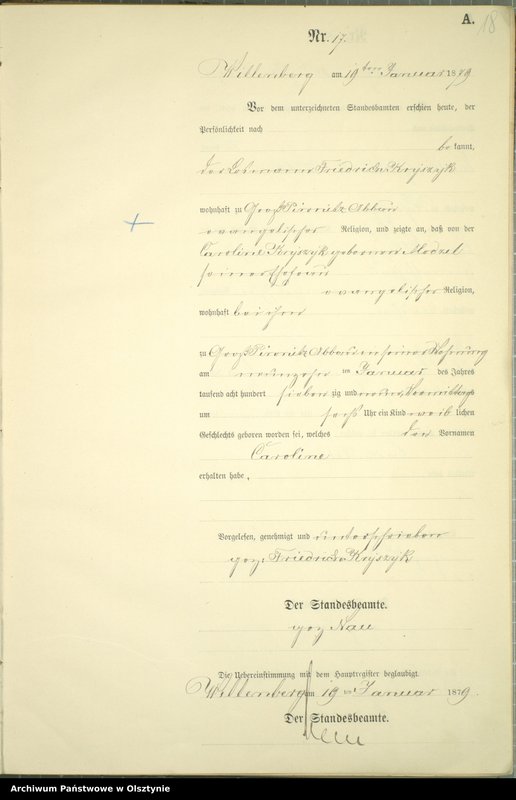 A. 18
Nr. 17.
Willenberg am 19ten Januar 1879
Vor dem unterzeichneten Standesbamten erschien heute, der
Persönlichkeit nach
bekannt,
der Friedrich Kryszyk
wohnhaft zu Groß Piwnitz Abbau
evangelischer Religion, und zeigte an, daß von der
Caroline Kryszyk geborenen
seiner Ehefrau
evangelischer Religion,
wohnhaft bei ihm
zu Groß Piwnitz Abbau in seiner Wohnung
am neunzehn ten Januar des Jahres
tausend acht hundert sieben zig und neun, Vormittags
um sechs Uhr ein Kind weib lichen
Geschlechts geboren worden sei, welches den Vornamen
Caroline
erhalten habe.
Vorgelesen, genehmigt und unterschrieben
gez. Friedrich Kryszyk
Der Standesbeamte.
gez Nau
Die Uebereinstimmung mit dem Hauptregister beglaubigt.
Willenberg am 19 ten Januar 1879.
Der Standesbeamte.
Archiwum Państwowe w Olsztynie